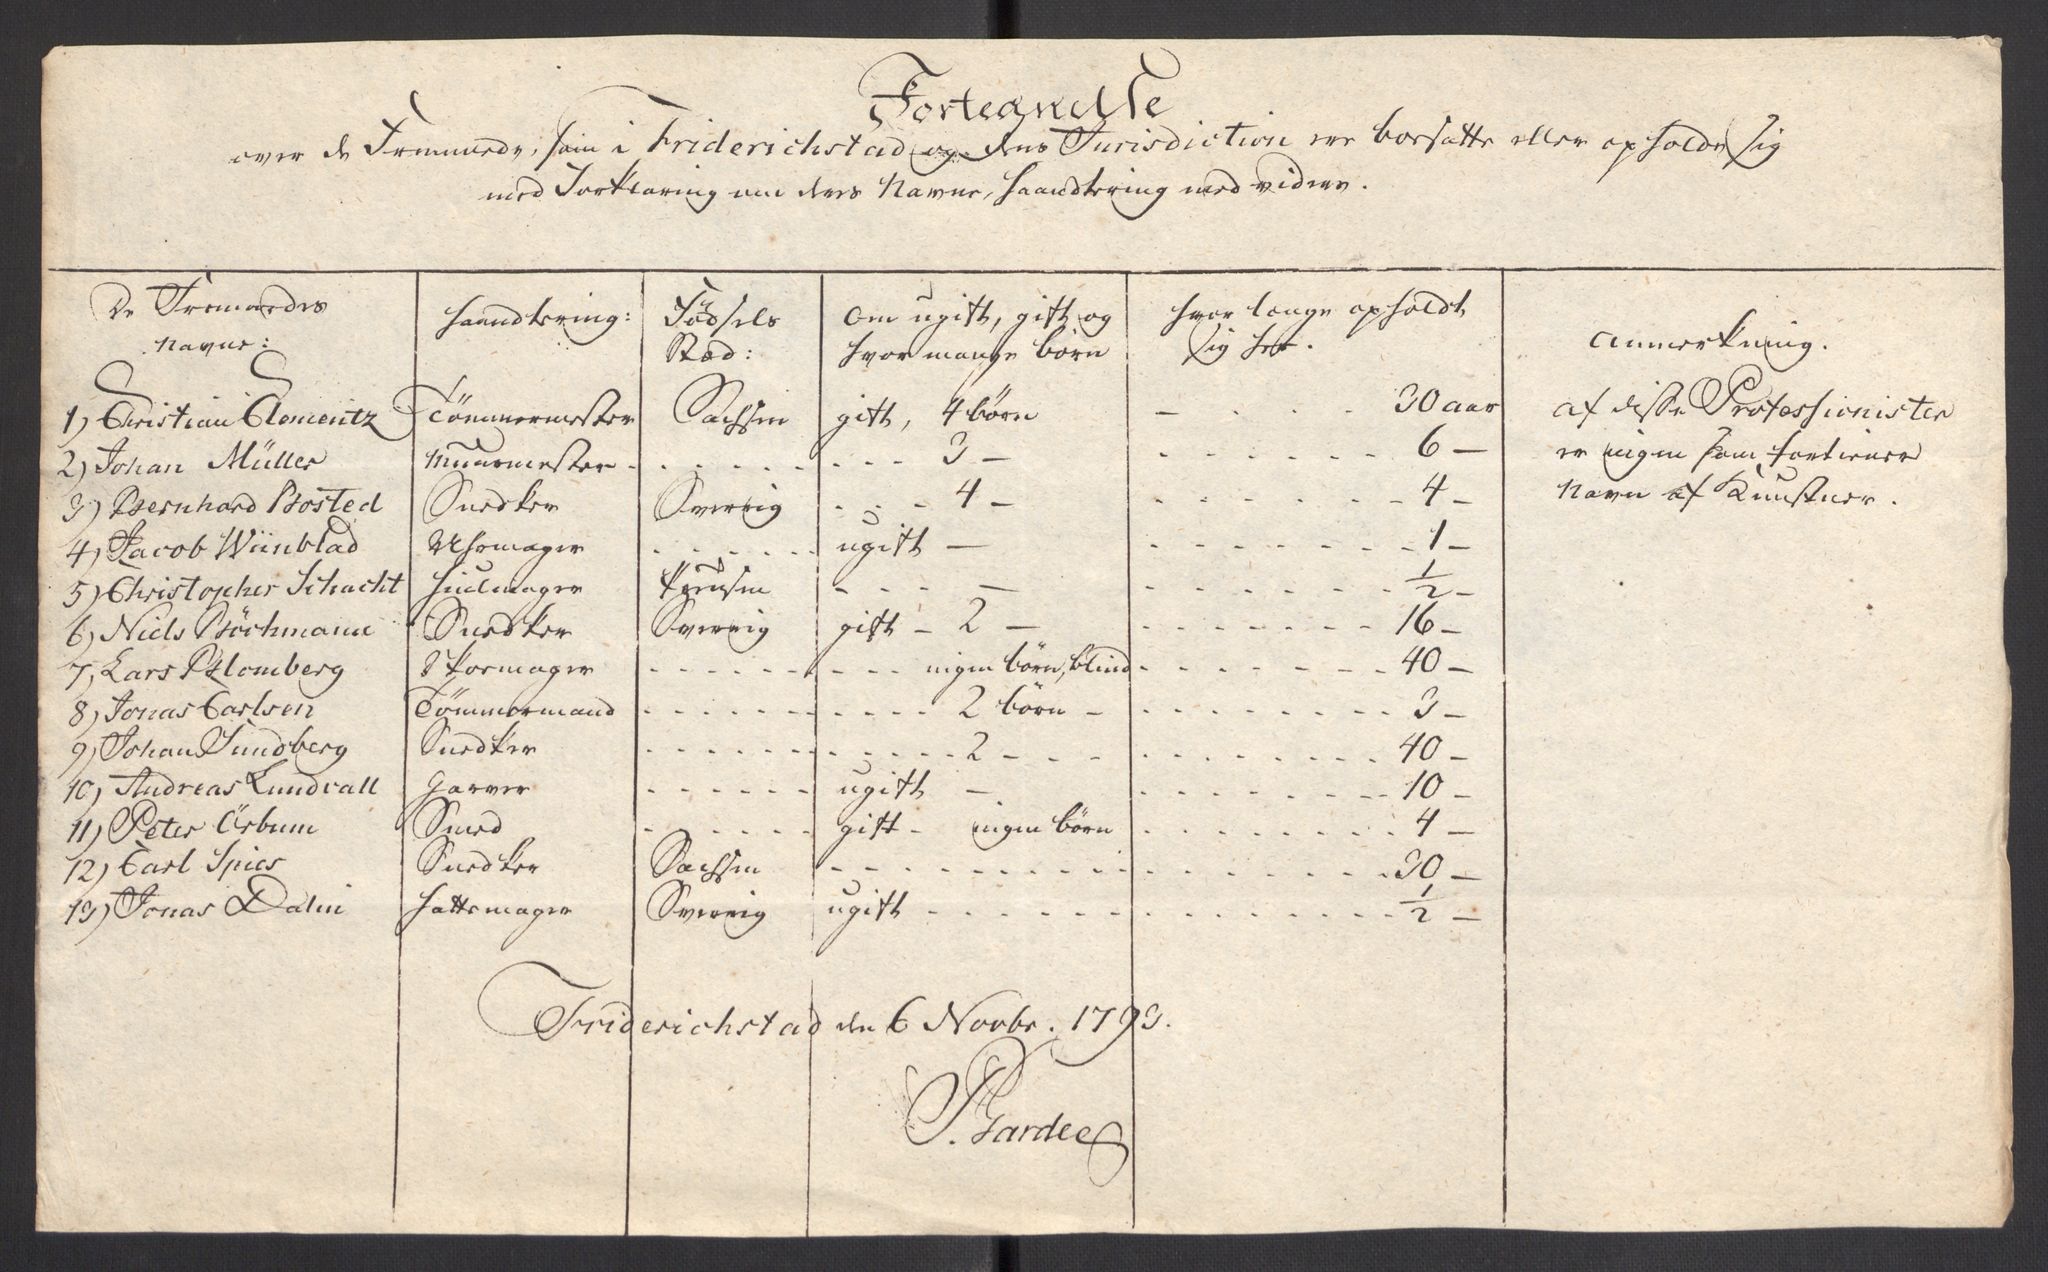 Fortegnelse
over de Fremmede, som i Friderichstad og dens Jurisdiction ere bosatte eller opholde sig
med Forklaring om deres Navne, Haandtering med videre.
De Fremmedes Navne: Haandtering: Fødsels Stæd: Om ugift, gift og hvor mange børn hvor længe opholdt sig her. Anmerkning.
1) Christian Clementz Tömmermester Sachsen gift, 4 børn - - - 30 aar af disse Professionister
2) Johan Müller Muurmester - - - - - - - - - 3 — - - - - - - 6 — er ingen som fortiener
3) Bernhard Bosted Snedker Sverrig - - - 4 — - - - - - - 4 — Navn af Kunstner.
4) Jacob Wiinblad Uhrmager - - - - - - ugift — - - - - - - - 1 —
5) Christopher Schacht Hiulmager Preusen - - - — - - - - - - - 1/2 —
6) Niels Böckmann Snedker Sverrig gift — 2 — - - - - - - - 16 —
7) Lars Blomberg Skoemager - - - - - - - - - ingen børn, blind - - - - - - - 40 —
8) Jonas Carlsen Tömmermand - - - - - - - - - - 2 børn — - - - - - - - 3 —
9) Johan Sundberg Snedker - - - - - - - - - - - - 2 - - - - - - - - - - 40 —
10) Andreas Lundvall Garver - - - - - - ugift — - - - - - - - 10 —
11) Peter Örbum Smed - - - - - - gift — ingen børn - - - - - - - 4 —
12) Carl Spies Snedker Sachsen - - - - - - - - - - - - - - - - 30 —
13) Jonas Dalin Hattemager Sverrig ugift - - - - - - - - - - - - - - 1/2 —
Friderichstad den 6 Novbr. 1793.